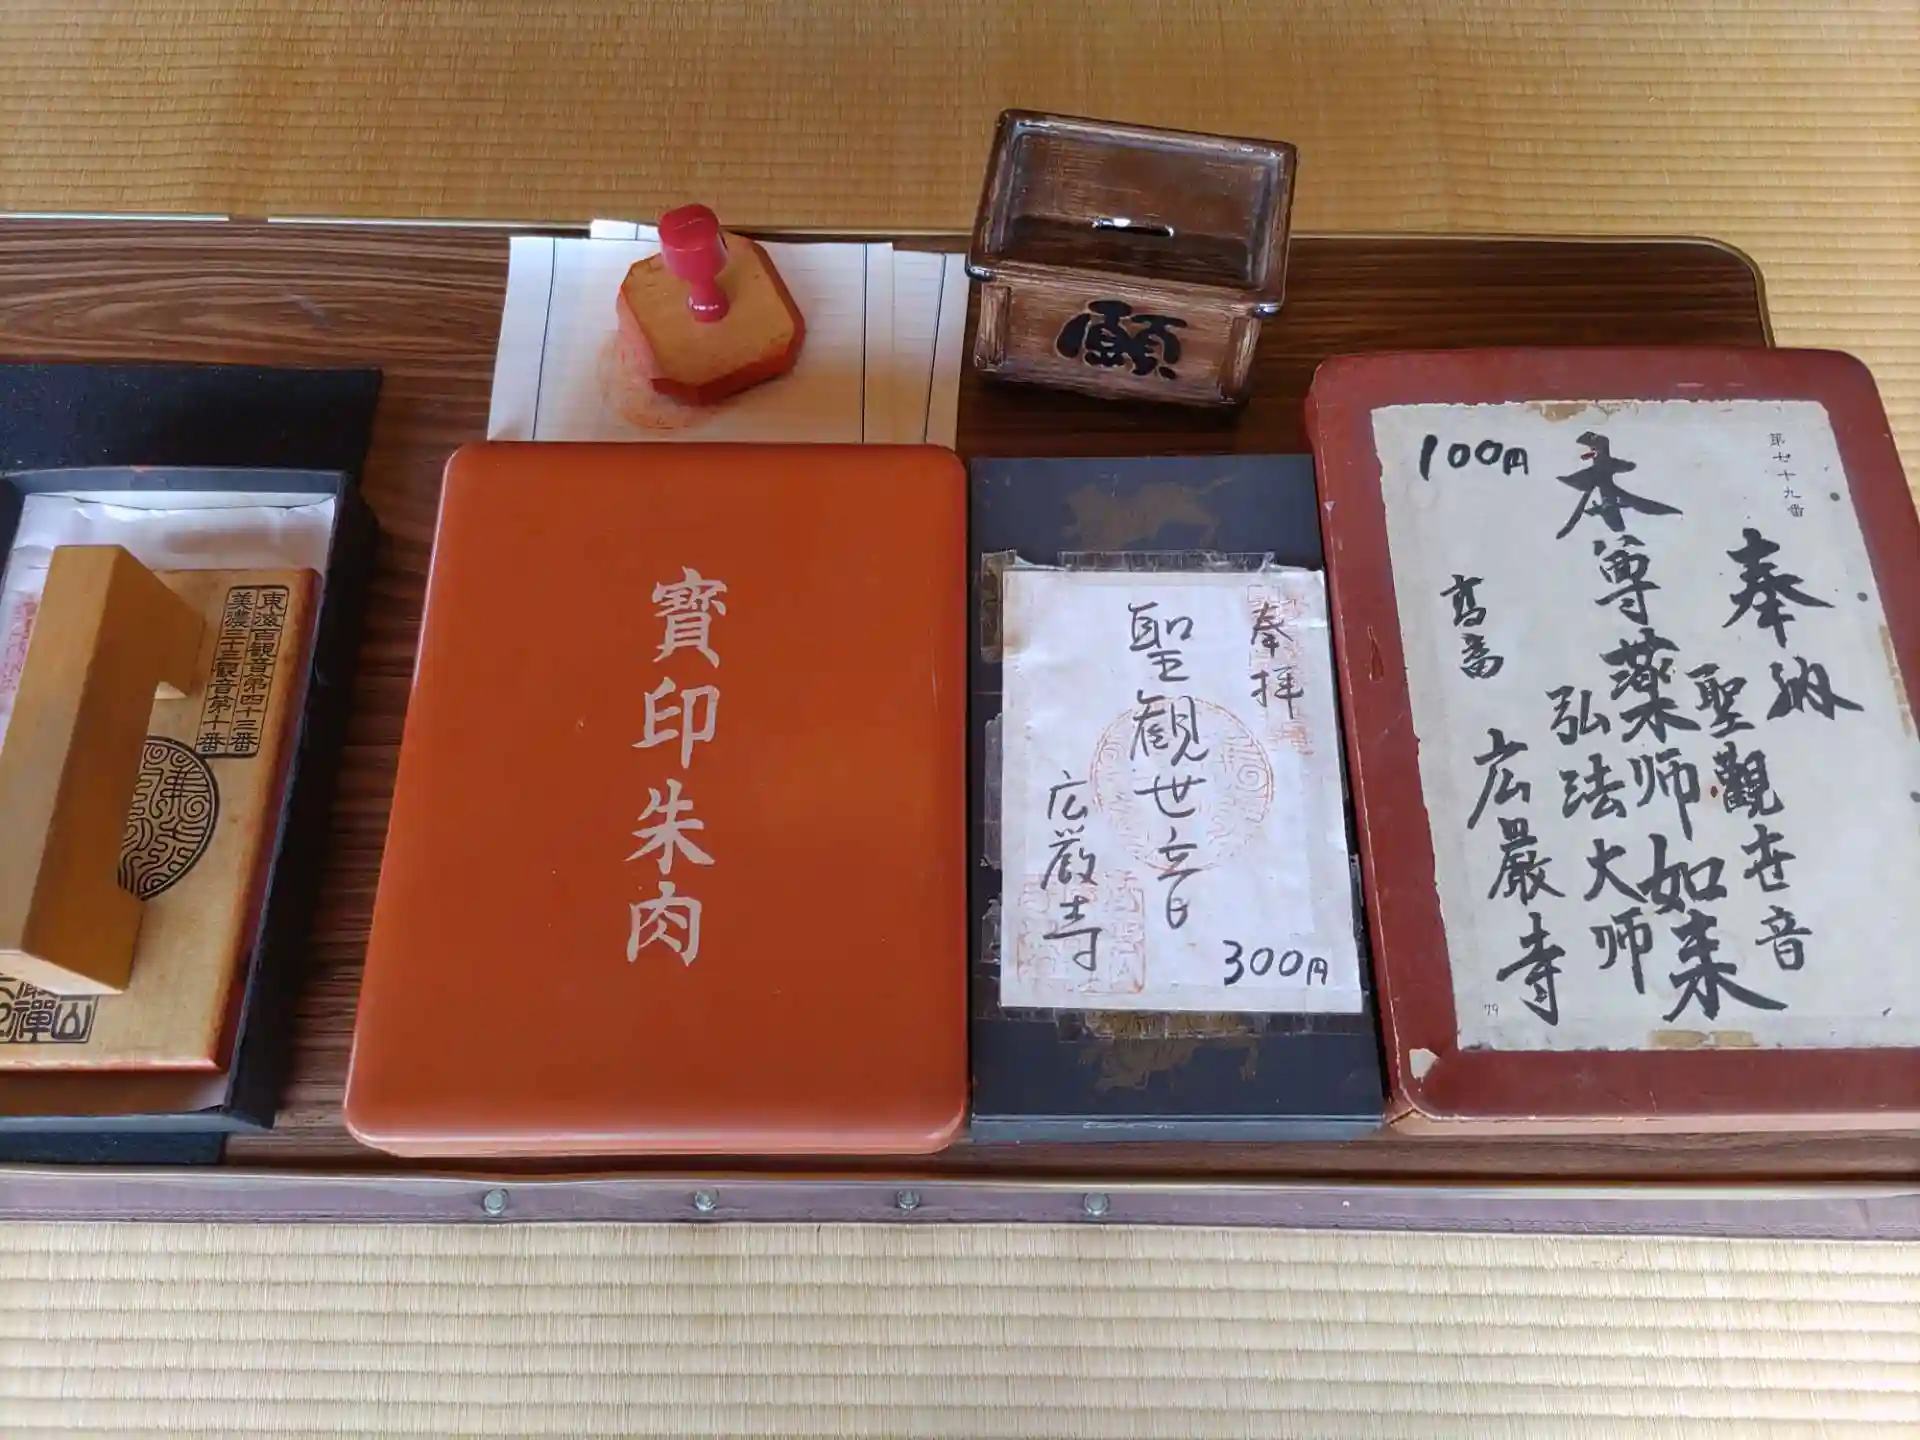 願
東海百観音第四十三番
美濃三十三観音第十番
寶印朱肉
奉拝
聖観世音
広厳寺
300円
第七十九番
奉納
聖觀世音
本尊薬师如来
弘法大师
広嚴寺
100円
79